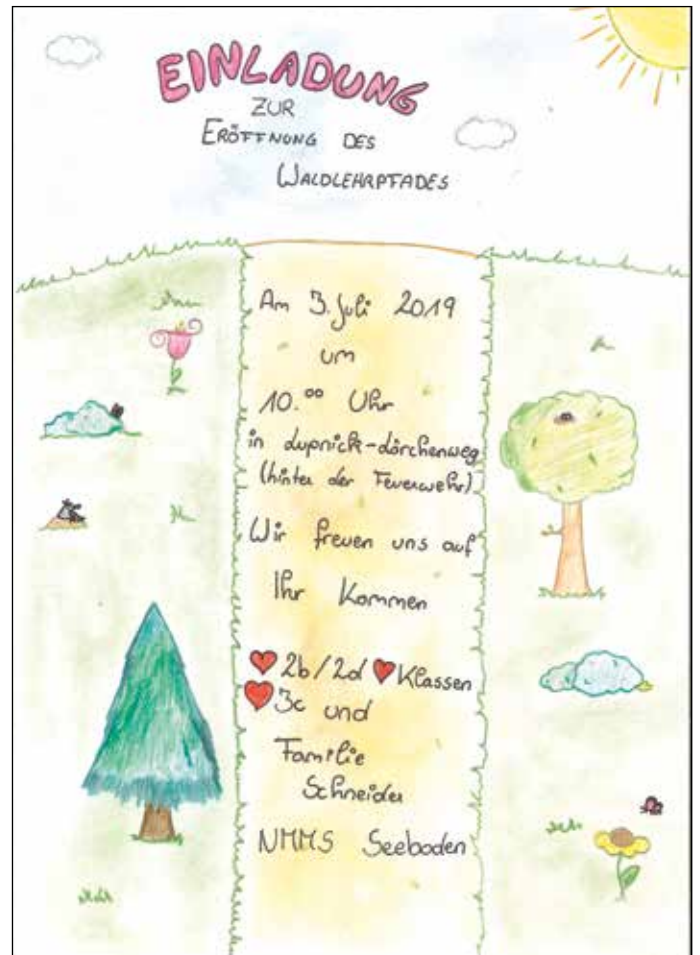 EINLADUNG
ZUR
ERÖFFNUNG DES
WALDLEHRPFADES
Am 3. Juli 2019
um
10.⁰⁰ Uhr
in Lupnick-Lärchenweg
(hinter der Feuerwehr)
Wir freuen uns auf
Ihr Kommen
2b/2d Klassen
3c und
Familie
Schneider
NMMS Seeboden